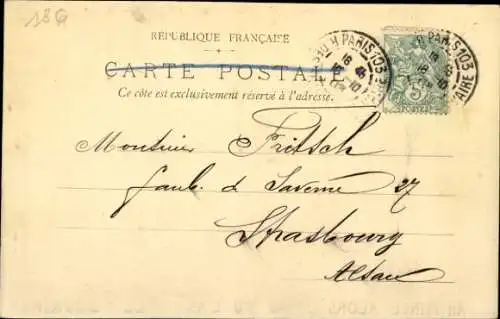 18G
RÉPUBLIQUE FRANÇAISE
CARTE POSTALE
Ce côté est exclusivement réservé à l'adresse.
PARIS 103
PARIS 103
Monsieur Fritsch
faub. d Saverne 27
Strasbourg
Alsace